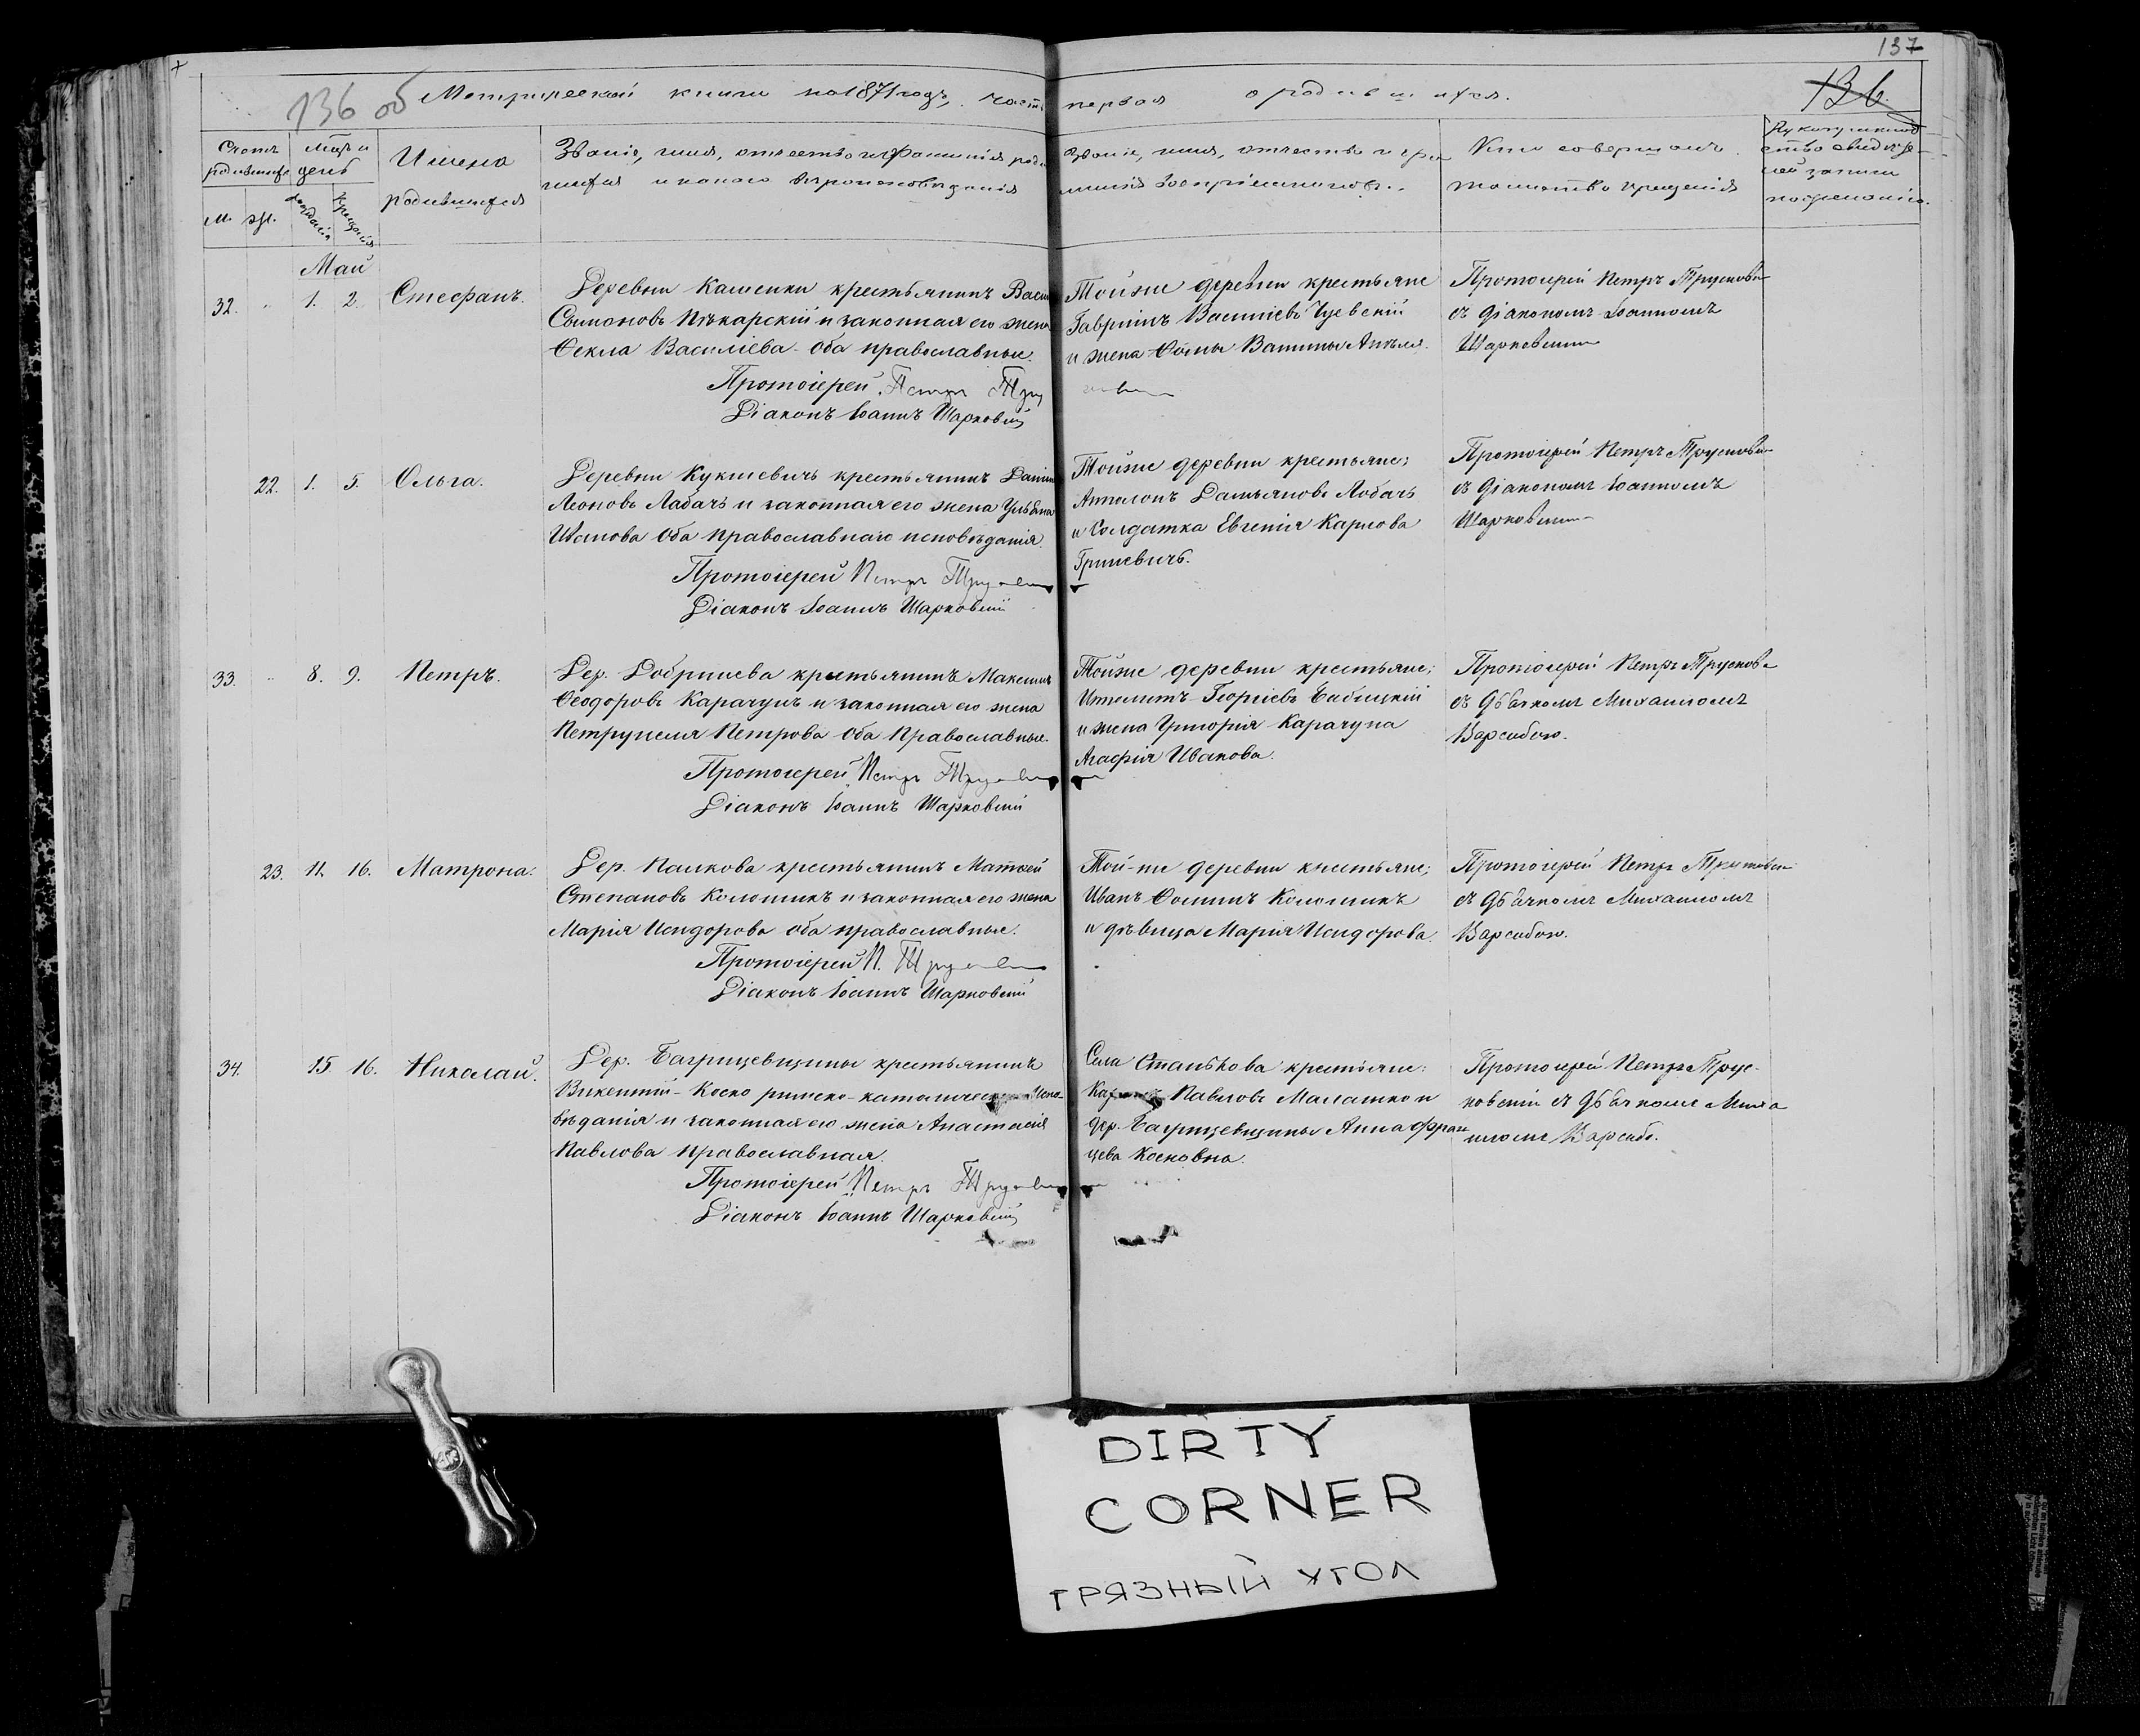 137
136 об
Метрической книги на 1871 годъ, часть первая о родившихся.
136.
Счетъ родившихся
м. ж.
Мѣсяцъ и день
рожденія
крещенія
Имена родившихся
Званіе, имя, отчество и фамилія роди-
телей и какого вѣроисповѣданія
Званіе, имя, отчество и фа-
милія воспріемниковъ.
Кто совершалъ
таинство крещенія
Рукоприклад-
ство свидѣте-
лей записи
по желанію.
Май
32. 1. 2. Стефанъ.
Деревни Кашенки крестьянинъ
Симоновъ Пѣкарскій и законная его жена
Ѳекла Василіева. Оба православные.
Протоіерей Петръ
Діаконъ Іоаннъ Шарковскій
Тойже деревни крестьяне
Гавріилъ Василіевъ
и жена Ѳомы
Протоіерей Петръ
съ діакономъ Іоанномъ
22. 1. 5. Ольга.
Деревни Кукшевичъ крестьянинъ
Леоновъ Лабачъ и законная его жена Ульяна
Иванова Оба православнаго исповѣданія.
Протоіерей Петръ
Діаконъ Іоаннъ Шарковскій
Тойже деревни крестьяне;
Дамьяновъ Лобачъ
и Солдатка Евгенія Карпова
Гриневичъ.
Протоіерей Петръ
съ діакономъ Іоанномъ
33. 8. 9. Петръ.
Дер. Добринева крестьянинъ Максимъ
Ѳеодоровъ Карачунъ и законная его жена
Петрунеля Петрова Оба Православные.
Протоіерей Петръ
Діаконъ Іоаннъ Шарковскій
Тойже деревни крестьяне;
Ипполитъ Георгіевъ Бабицкій
и жена Григорія Карачуна
Агафія Иванова.
Протоіерей Петръ
съ дьячкомъ Михаиломъ
Варсабою.
23. 11. 16. Матрона.
Дер. Пашкова крестьянинъ Матѳей
Степановъ Колошикъ и законная его жена
Марія Исидорова оба православные.
Протоіерей П.
Діаконъ Іоаннъ Шарковскій
Той-же деревни крестьяне;
Иванъ Ѳоминъ Колошикъ
и дѣвица Марія Исидорова.
Протоіерей Петръ
съ дьячкомъ Михаиломъ
Варсабою.
34. 15 16. Николай.
Дер. Багрицевщины крестьянинъ
Викентій Коско римско-католическаго Испо-
вѣданія и законная его жена Анастасія
Павлова православная.
Протоіерей Петръ
Діаконъ Іоаннъ Шарковскій
Села Станькова крестьяне:
Павловъ Малашко и
дер. Багрицевщины Анна Фран
цева Косковна.
Протоіерей Петръ Трус-
ковскій съ дьячкомъ Миха
иломъ Варсаб.
DIRTY
CORNER
ГРЯЗНЫЙ УГОЛ